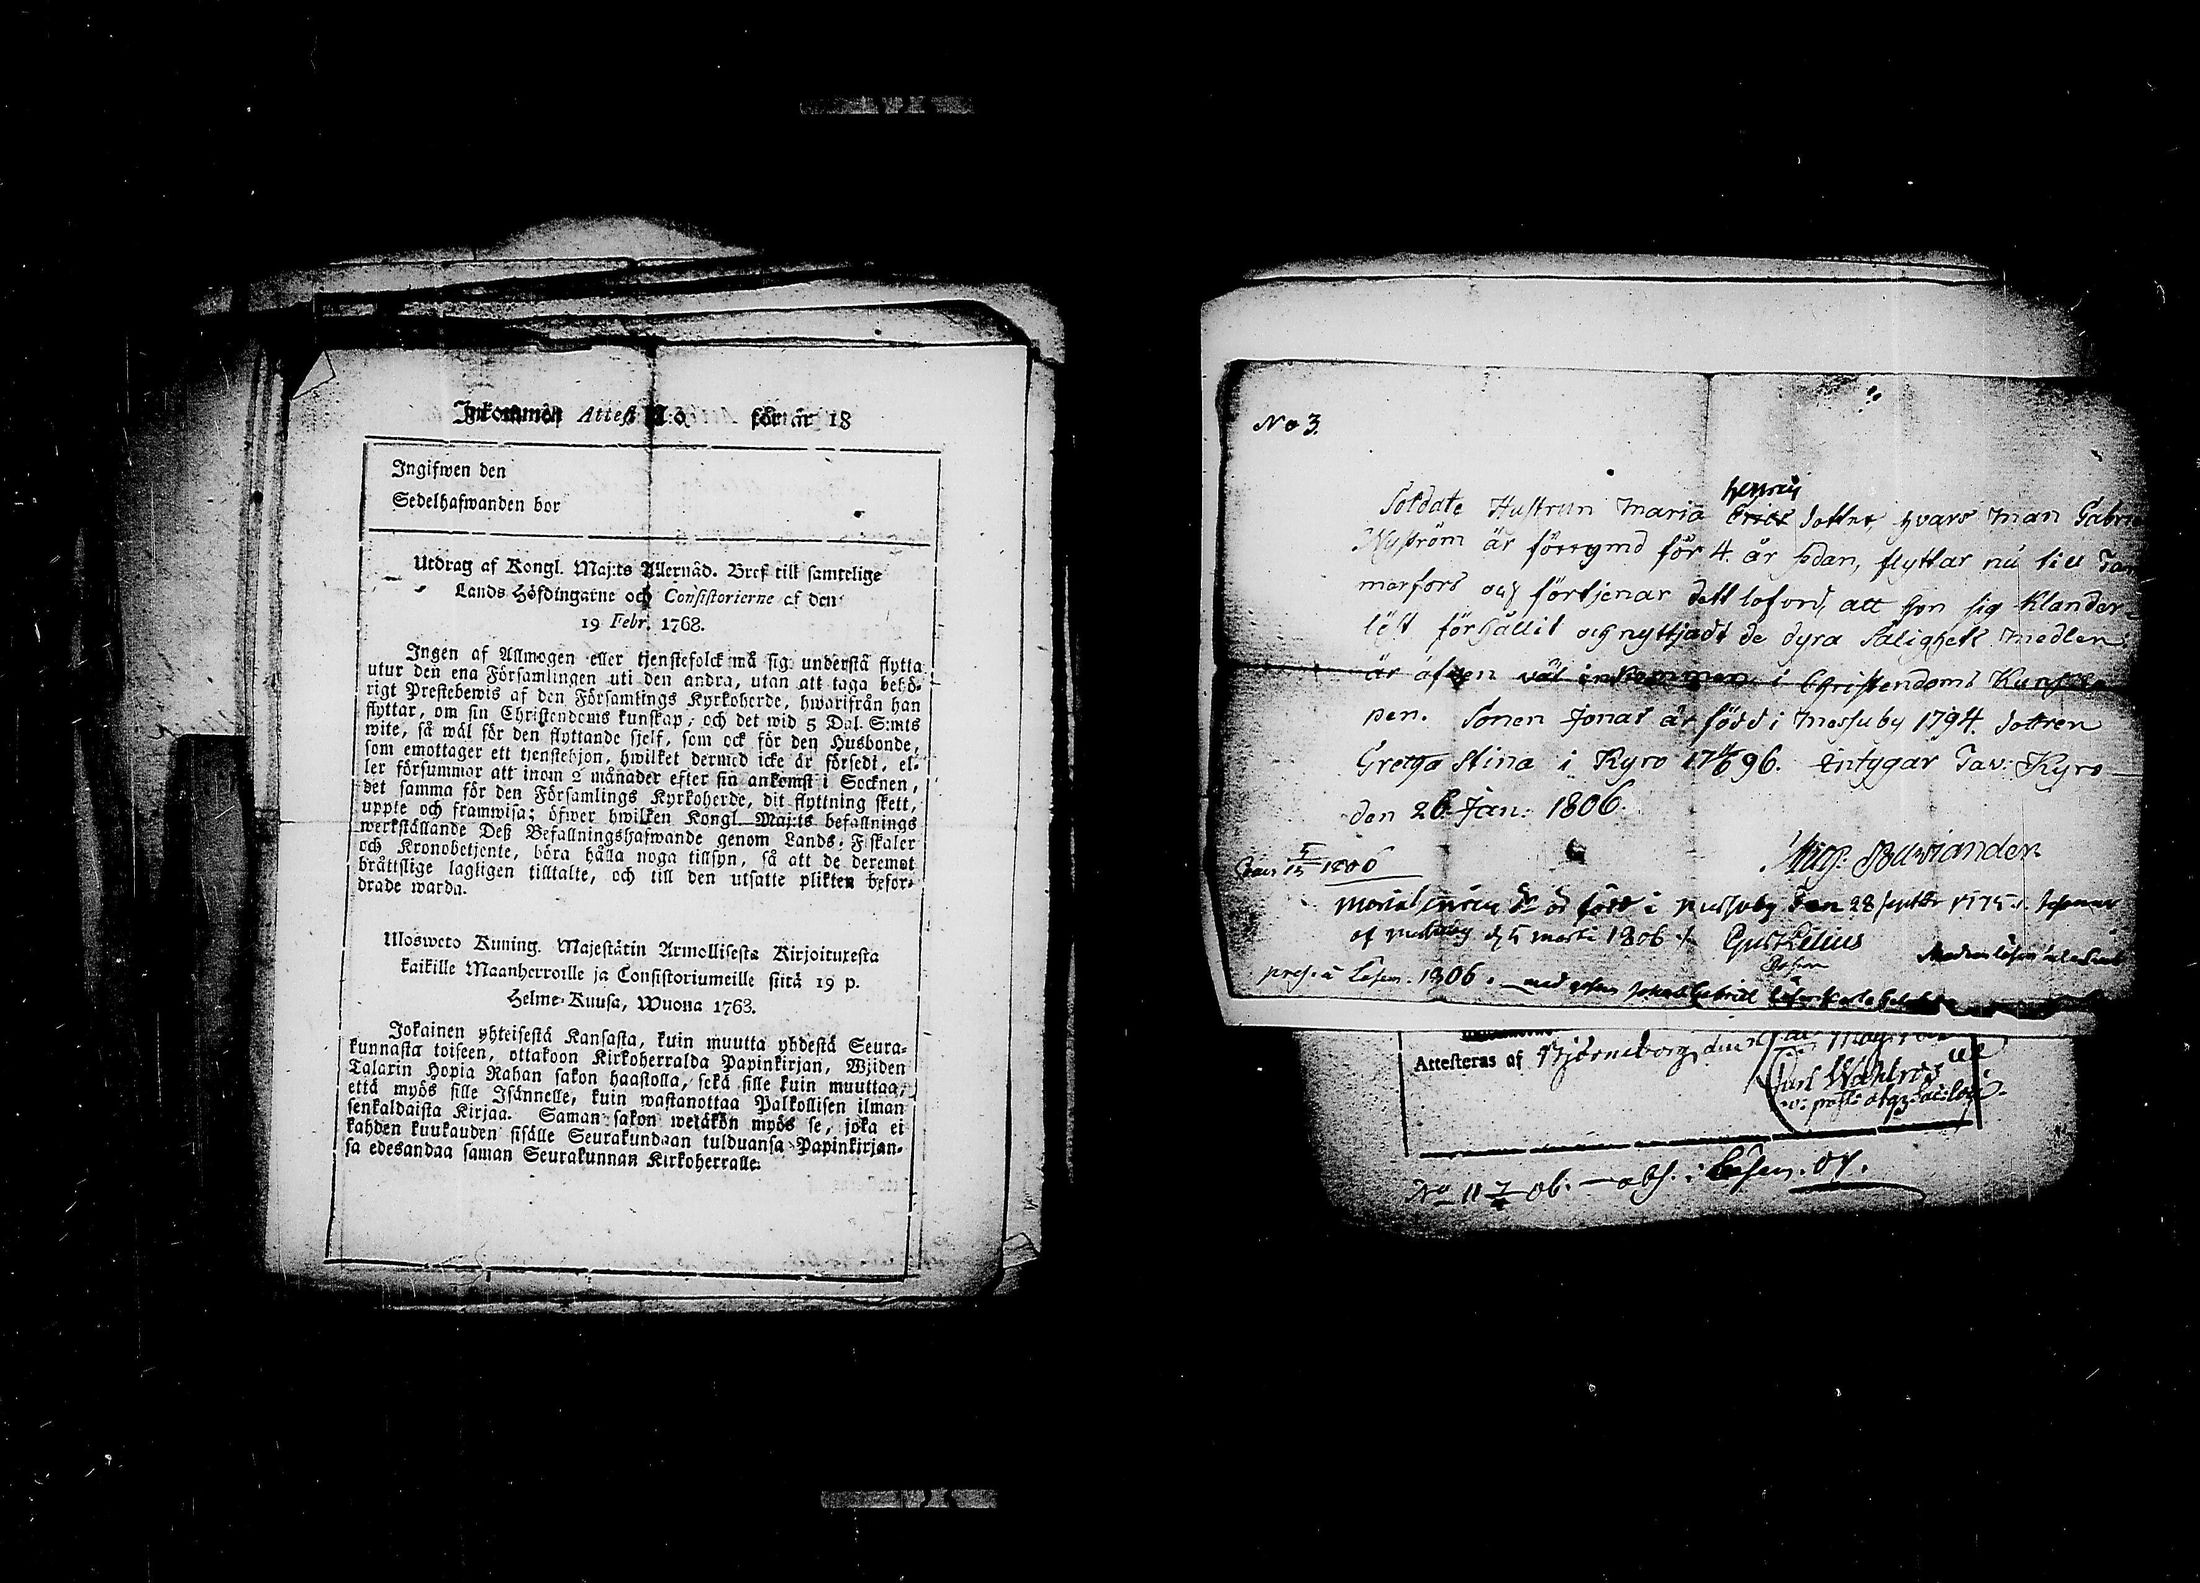 Inkommen Attest N:o för år 18
Ingifwen den
Sedelhafwanden bor
Utdrag af Kongl. Maj:ts Allernåd. Bref till samtelige
Lands Höfdingarne och Consistorierne af den
19 Febr. 1768.
Ingen af Allmogen eller tjenstefolck må sig understå flytta
utur den ena Församlingen uti den andra, utan att taga behö-
rigt Prestebewis af den Församlings Kyrkoherde, hwarifrån han
flyttar, om sin Christendoms kunskap, och det wid 5 Dal. S:mts
wite, så wäl för den flyttande sjelf, som ock för den Husbonde,
som emottager ett tjenstehjon, hwilket dermed icke är försedt, el-
ler försummar att inom 2 månader efter sin ankomst i Socknen,
det samma för den Församlings Kyrkoherde, dit flyttning skett,
uppte och framwisa; öfwer hwilken Kongl. Maj:ts befallnings
werkställande Deß Befallningshafwande genom Lands-Fiskaler
och Kronobetjente, böra hålla noga tillsyn, så att de deremot
bråttslige lagligen tilltalte, och till den utsatte plikten befor-
drade warda.
Ulosweto Kuning. Majestätin Armollisesta Kirjoituresta
kaikille Maanherroille ja Consistoriumeille siitä 19 p.
Helme-Kuusa, Wuona 1763.
Jokainen yhteisestä Kansasta, kuin muutta yhdestä Seura-
kunnasta toiseen, ottakoon Kirkoherralda Papinkirjan, Wjiden
Talarin Hopia Rahan sakon haastolla, sekä sille kuin muuttaa,
että myös sille Isännelle, kuin wastanottaa Palkollisen ilman
senkaldaista Kirjaa. Saman sakon wetäkön myös se, joka ei
kahden kuukauden sisälle Seurakundaan tulduansa Papinkirjan-
sa edesandaa saman Seurakunnan Kirkoherralle.
No 3.
henrics
Soldate Hustrun Maria Erics dotter hvars man Gabriel
Nyström är förrymd för 4. år sedan, flyttar nu till Tam
merfors och förtjenar dett loford, att hon sig klander-
löst förhållit och nyttjadt de dyra Salighets medlen
är äfven väl inkommen i Christendoms Kunska
pen. Sonen Jonas är född i Messuby 1794. dottren
Gretha Stina i Kyro 17 96. Intygar Tav: Kyro
den 26. Jan: 1806.
1806
Maria är född i Messuby den 28 1775
af d 5 martii 1806
præs. i Läsen. 1806. med
Attesteras af Björneborg, den
Carl Wahlroos
No 11 06. — abs. i Läsen. 07.